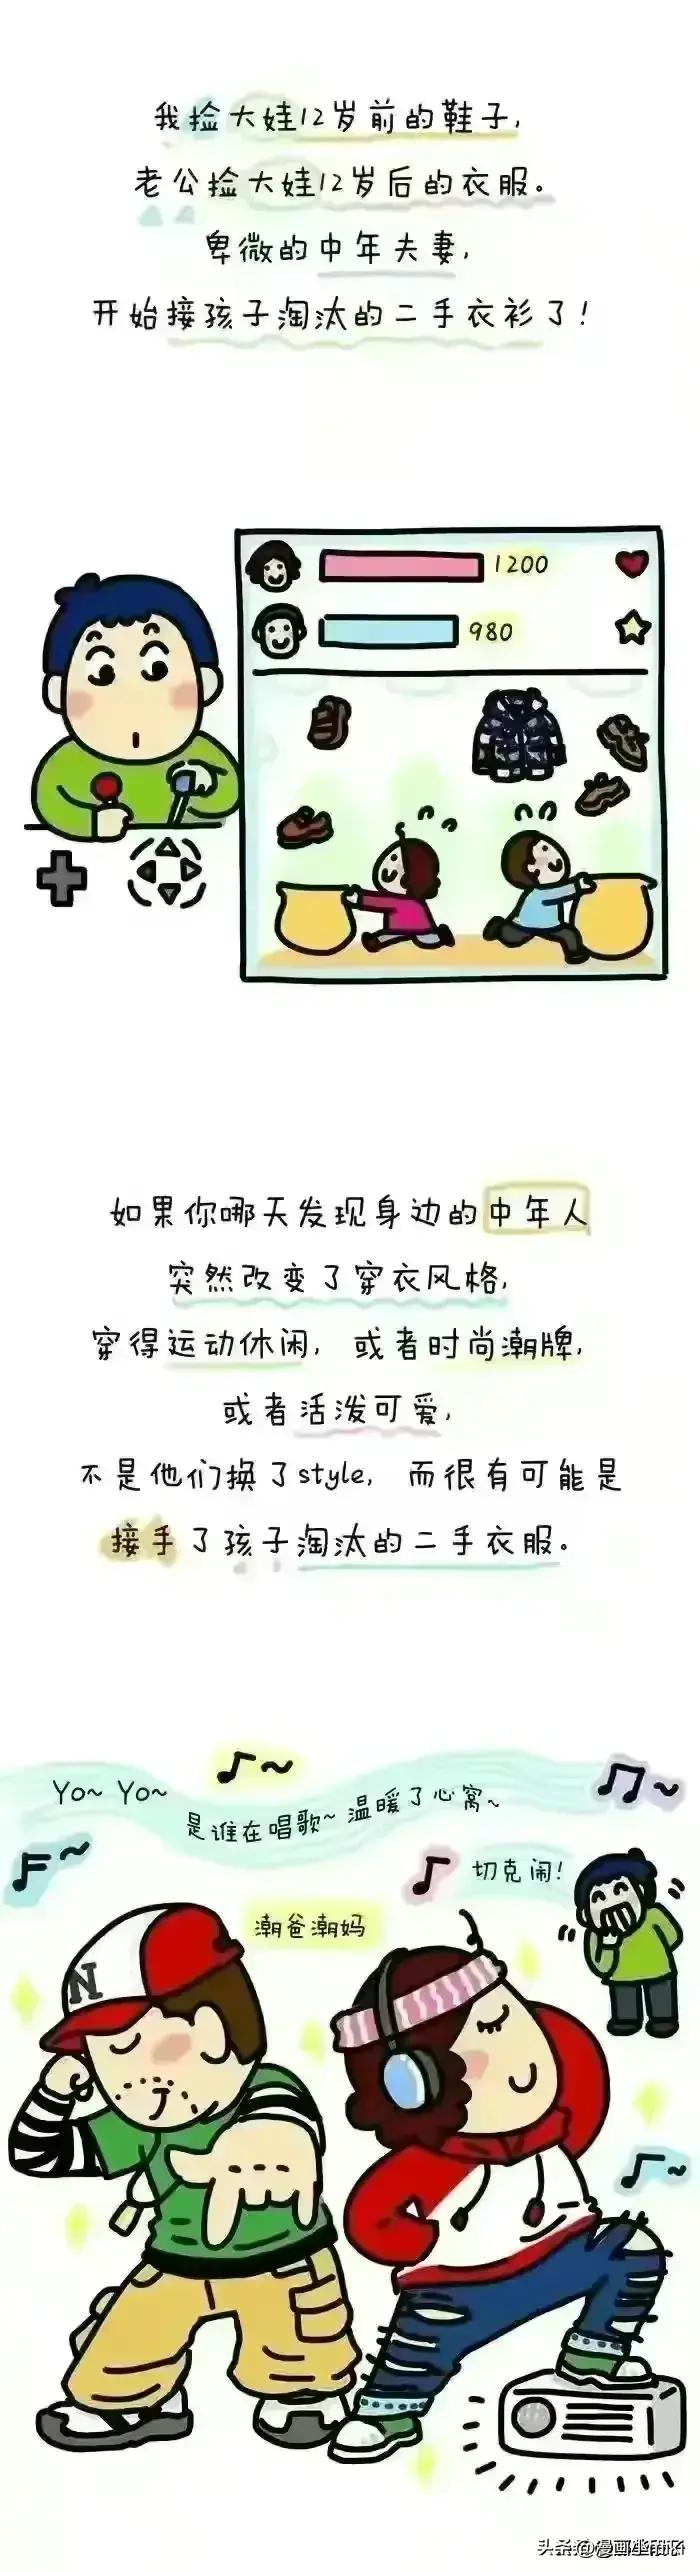 我捡大娃12岁前的鞋子,
老公捡大娃12岁后的衣服。
卑微的中年夫妻,
开始接孩子淘汰的二手衣衫了!
1200
980
如果你哪天发现身边的中年人
突然改变了穿衣风格,
穿得运动休闲, 或者时尚潮牌,
或者活泼可爱,
不是他们换了style, 而很有可能是
接手了孩子淘汰的二手衣服。
Yo~ Yo~
是谁在唱歌~ 温暖了心窝~
切克闹!
潮爸潮妈
N
头条